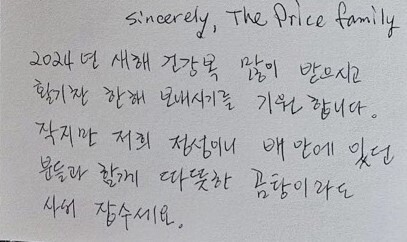 sincerely, The Price family
2024년 새해 건강복 많이 받으시고
활기찬 한해 보내시기를 기원합니다.
작지만 저희 정성이니 배 안에 있던
분들과 함께 따뜻한 곰탕이라도
사서 잡수세요.